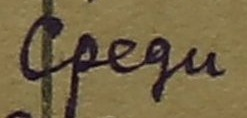 Среди